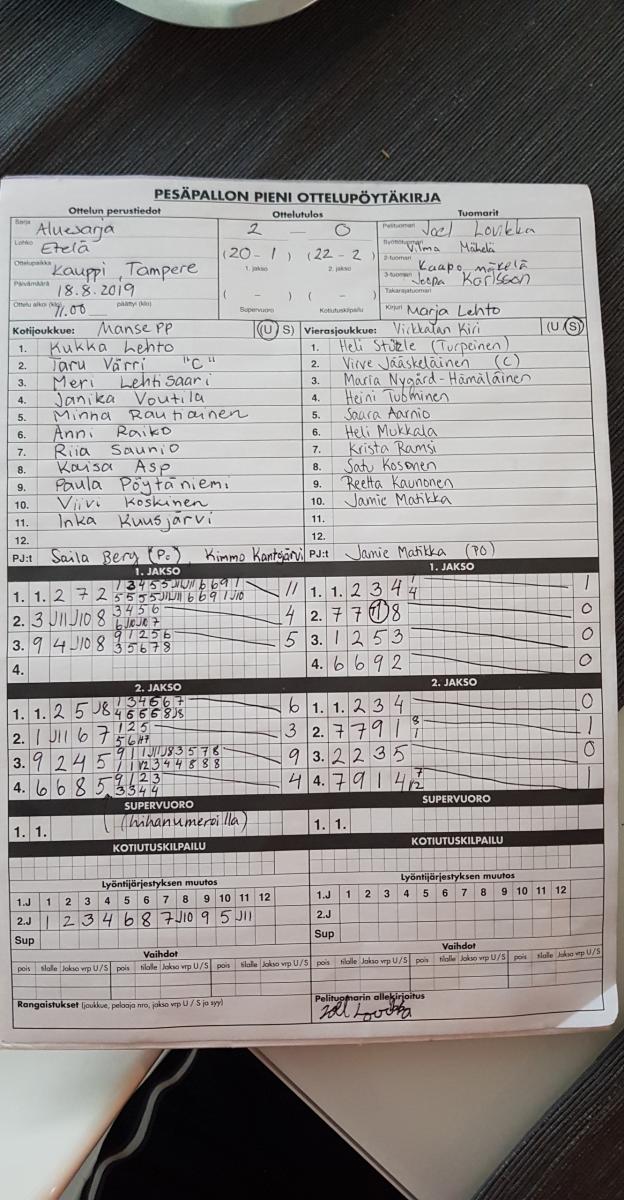 PESÄPALLON PIENI OTTELUPÖYTÄKIRJA
Ottelun perustiedot Ottelutulos Tuomarit
Sarja Aluesarja 2 – 0 Pelituomari Joel Lovikka
Lohko Etelä Syöttötuomari Vilma Mäkelä
(20 - 1) (22 - 2)
Ottelupaikka Kauppi, Tampere 1. jakso 2. jakso 2-tuomari Kaapo Mäkelä
Päivämäärä 18.8.2019 3-tuomari Joopa Karlsson
( - ) ( - ) Takarajatuomari
Ottelu alkoi (klo) 11.00 päättyi (klo) Supervuoro Kotiutuskilpailu Kirjuri Marja Lehto
Kotijoukkue: Manse PP (U S) Vierasjoukkue: Viikkatan Kiri (U S)
1. Kukka Lehto 1. Heli Stützle (Turpeinen)
2. Taru Värri "C" 2. Virve Jääskeläinen (C)
3. Meri Lehtisaari 3. Maria Nygård-Hämäläinen
4. Janika Voutila 4. Heini Tuominen
5. Minna Rautiainen 5. Saara Aarnio
6. Anni Raiko 6. Heli Mukkala
7. Riia Saunio 7. Krista Ramsi
8. Kaisa Asp 8. Satu Kosonen
9. Paula Pöytäniemi 9. Reetta Kaunonen
10. Viivi Koskinen 10. Jamie Matikka
11. Inka Kuusjärvi 11.
12. 12.
PJ:t Saila Berg (Po) Kimmo Kantojärvi PJ:t Jamie Matikka (PO)
1. JAKSO 1. JAKSO
1. 1. 2 7 2 11 1. 1. 2 3 4 1
2. 3 J11 J10 8 3 4 5 6 4 2. 7 7 1 8 0
3. 9 4 J10 8 9 1 2 5 6 3 5 6 7 8 5 3. 1 2 5 3 0
4. 4. 6 6 9 2 0
2. JAKSO 2. JAKSO
1. 1. 2 5 J8 6 1. 1. 2 3 4 0
2. 1 J11 6 7 1 2 5 3 2. 7 7 9 1 8 1 1
3. 9 2 4 5 9 3. 2 2 3 5 0
4. 6 6 8 5 9 1 2 3 3 3 4 4 4 4. 7 9 1 4 7 12 1
SUPERVUORO SUPERVUORO
1. 1. (hihanumeroilla) 1. 1.
KOTIUTUSKILPAILU KOTIUTUSKILPAILU
Lyöntijärjestyksen muutos Lyöntijärjestyksen muutos
1.J 1 2 3 4 5 6 7 8 9 10 11 12 1.J 1 2 3 4 5 6 7 8 9 10 11 12
2.J 1 2 3 4 6 8 7 J10 9 5 J11 2.J
Sup Sup
Vaihdot Vaihdot
pois tilalle Jakso vrp U/S pois tilalle Jakso vrp U/S pois tilalle Jakso vrp U/S pois tilalle Jakso vrp U/S pois tilalle Jakso vrp U/S pois tilalle Jakso vrp U/S
Rangaistukset (joukkue, pelaaja nro, jakso vrp U / S ja syy) Pelituomarin allekirjoitus
Joel Lovikka